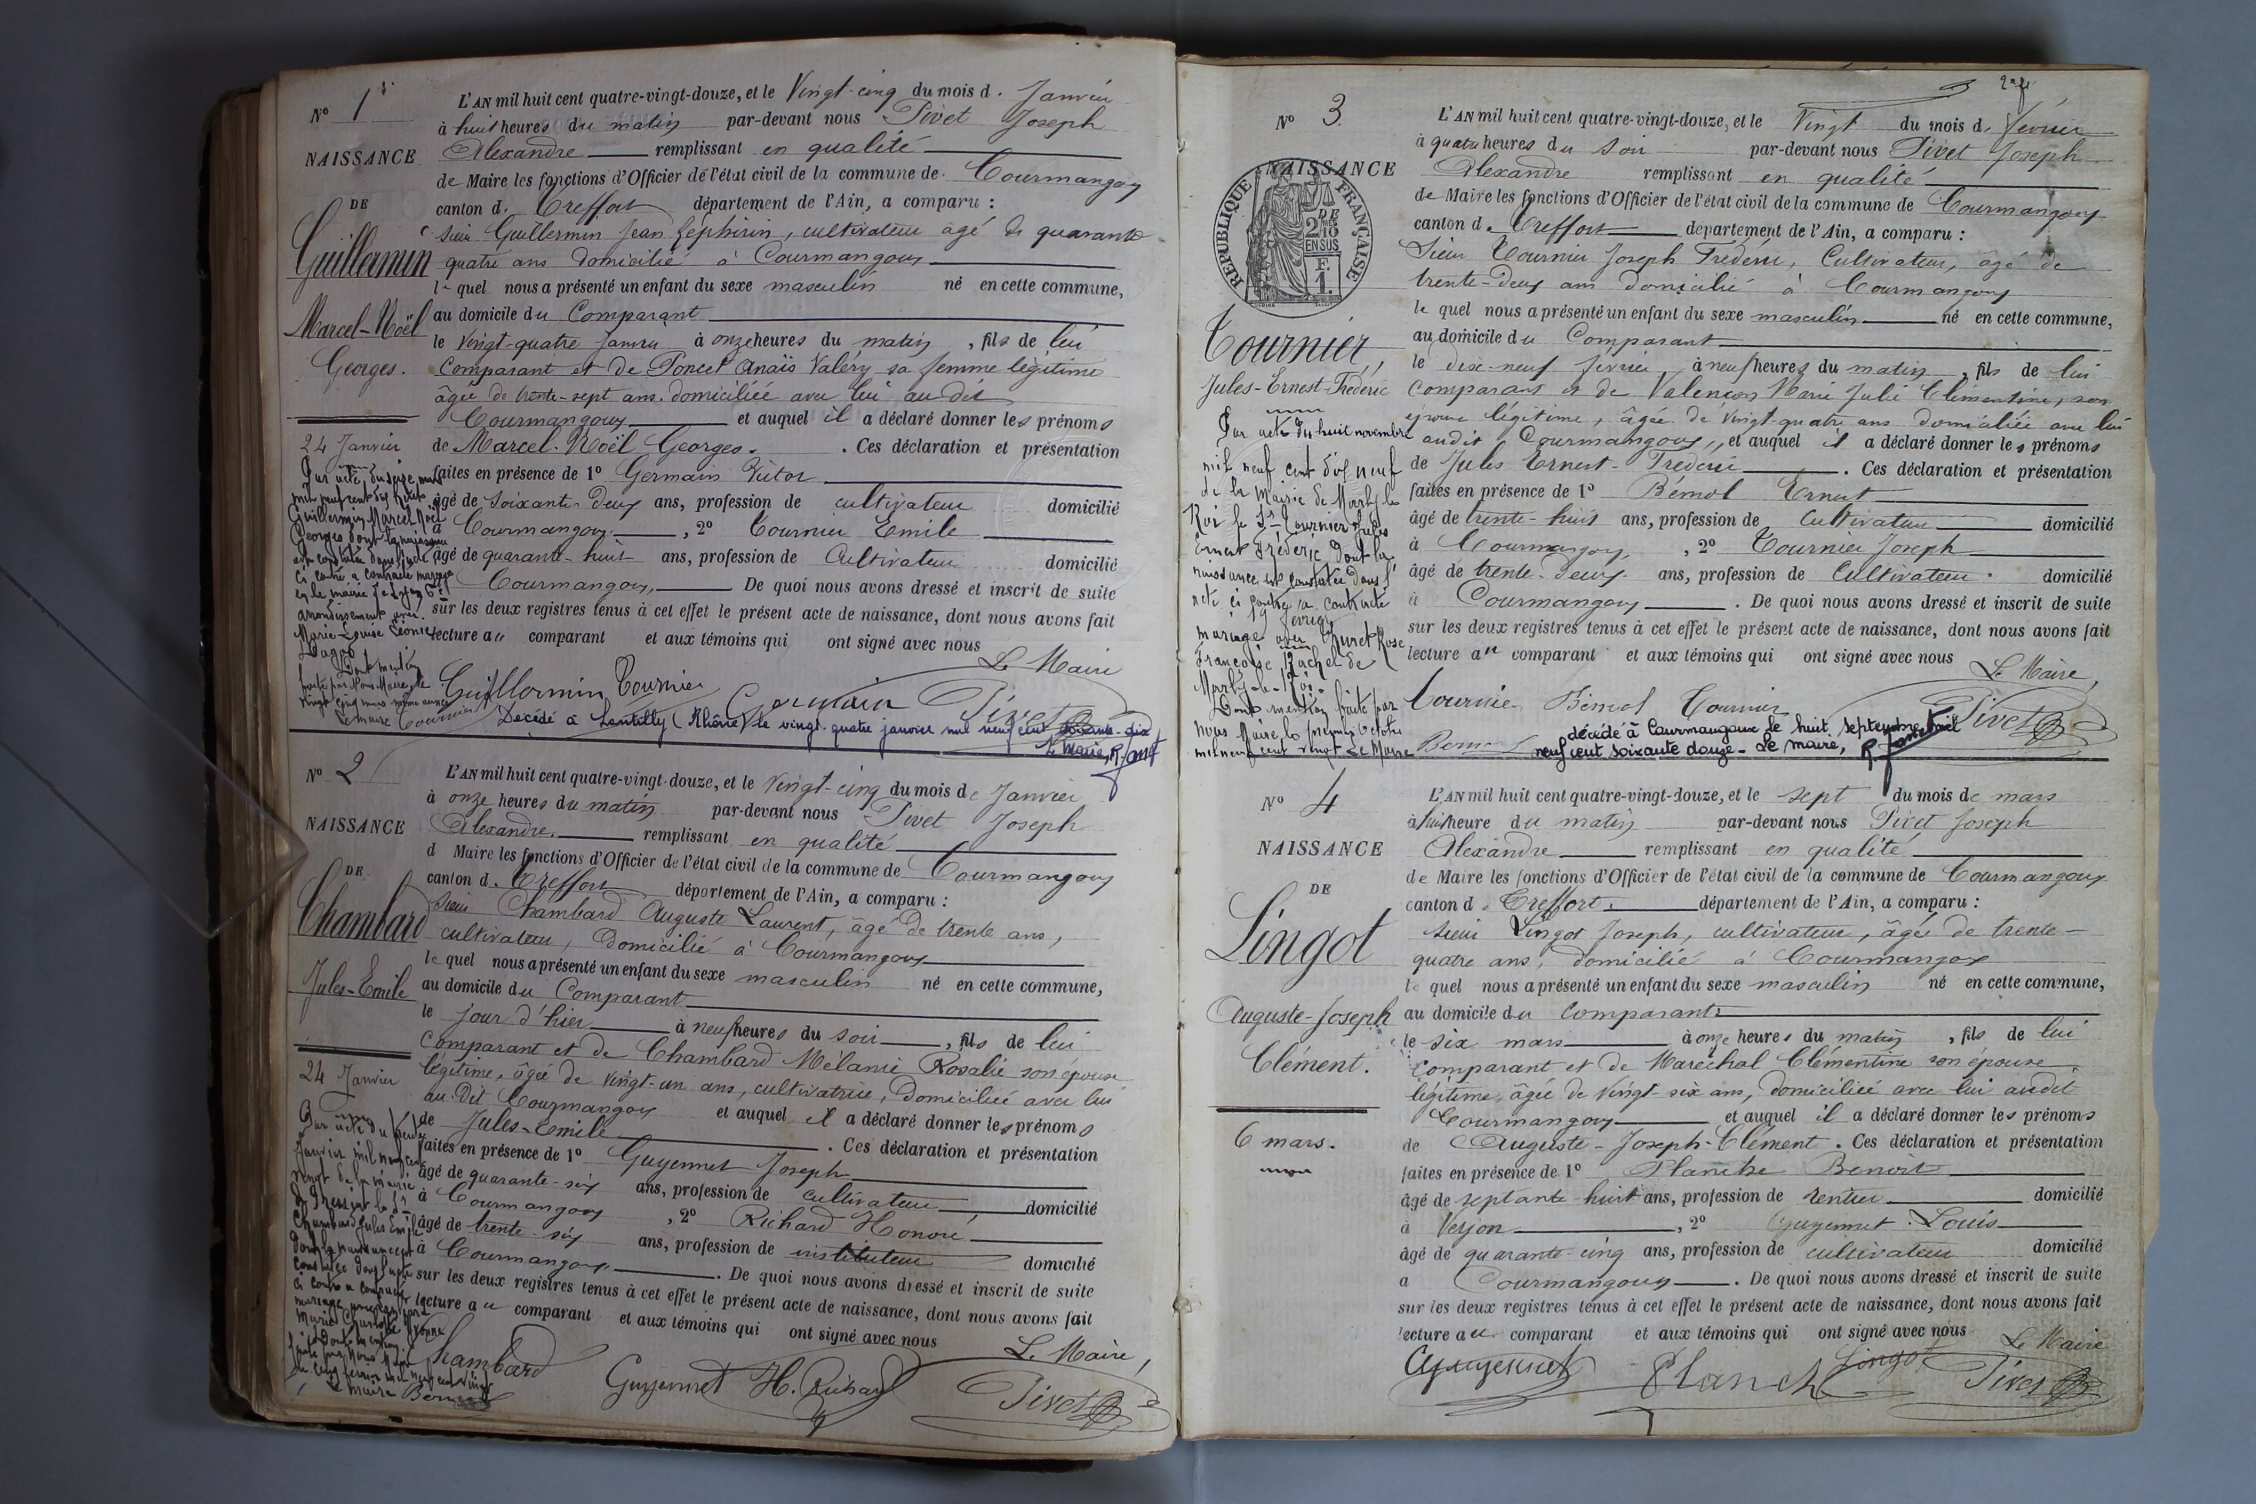 N° 1
NAISSANCE
DE
Guillermin
Marcel-Noël
Georges.
24 Janvier
L'AN mil huit cent quatre-vingt-douze, et le Vingt-cinq du mois d. Janvier
à huit heures du matin par-devant nous Pivet Joseph
Alexandre remplissant en qualité
de Maire les fonctions d'Officier de l'état civil de la commune de Courmangoux
canton d. Treffort département de l'Ain, a comparu :
sieur Guillermin Jean Zéphirin, cultivateur âgé de quarante
quatre ans domicilié à Courmangoux
lequel nous a présenté un enfant du sexe masculin né en cette commune,
au domicile du Comparant
le Vingt-quatre Janvier à onze heures du matin, fils de lui
Comparant et de Poncet Anaïs Valéry sa femme légitime
âgée de trente-sept ans domiciliée avec lui au dit
Courmangoux et auquel il a déclaré donner les prénoms
de Marcel-Noël Georges. . Ces déclaration et présentation
faites en présence de 1° Germain Victor
âgé de soixante-deux ans, profession de cultivateur domicilié
à Courmangoux, 2° Tournier Emile
âgé de quarante-huit ans, profession de Cultivateur domicilié
Courmangoux, De quoi nous avons dressé et inscrit de suite
sur les deux registres tenus à cet effet le présent acte de naissance, dont nous avons fait
lecture au comparant et aux témoins qui ont signé avec nous
Le Maire
Guillermin Tournier Germain Pivet
Décédé à Lentilly (Rhône) le vingt-quatre janvier mil neuf cent soixante-dix
Le Maire,
Guillermin Marcel Noël
Georges dont la naissance
est constatée dans l'acte
ci contre a contracté mariage
arrondissement avec
Marie-Louise Léonie
Dont mention
N° 2
NAISSANCE
DE
Chambard
Jules-Emile
24 Janvier
L'AN mil huit cent quatre-vingt-douze, et le Vingt-cinq du mois de Janvier
à onze heures du matin par-devant nous Pivet Joseph
Alexandre, remplissant en qualité
d Maire les fonctions d'Officier de l'état civil de la commune de Courmangoux
canton d. Treffort département de l'Ain, a comparu :
sieur Chambard Auguste Laurent, âgé de trente ans,
cultivateur, domicilié à Courmangoux
lequel nous a présenté un enfant du sexe masculin né en cette commune,
au domicile du Comparant
le jour d'hier à neuf heures du soir, fils de lui
comparant et de Chambard Mélanie Rosalie son épouse
légitime, âgée de vingt-un ans, cultivatrice, domiciliée avec lui
au dit Courmangoux et auquel il a déclaré donner les prénoms
de Jules-Emile . Ces déclaration et présentation
faites en présence de 1° Guyennet Joseph
âgé de quarante-six ans, profession de cultivateur, domicilié
à Courmangoux, 2° Richard Honoré
âgé de trente-six ans, profession de instituteur domicilié
à Courmangoux. . De quoi nous avons dressé et inscrit de suite
sur les deux registres tenus à cet effet le présent acte de naissance, dont nous avons fait
lecture au comparant et aux témoins qui ont signé avec nous
Le Maire,
Chambard Guyennet H. Richard Pivet
janvier mil neuf cent
vingt de la mairie
de Pressiat le Sr
Chambard Jules Emile
dont la naissance est
constatée dans l'acte
ci contre a contracté
mariage avec
Marie Charlotte Yvonne
Le Maire
N° 3
NAISSANCE
DE
RÉPUBLIQUE FRANÇAISE
2/10
EN SUS
F.
1.
Tournier,
Jules-Ernest-Frédéric
Par acte du huit novembre
mil neuf cent dix neuf
de la Mairie de Marly le
Roi le Sr Tournier Jules
Ernest Frédéric dont la
naissance est constatée dans l'
acte ci contre a contracté
mariage avec Rose
Françoise Rachel de
Marly-le-Roi.
Dont mention faite par
nous Maire, le premier
mil neuf cent vingt Le Maire
L'AN mil huit cent quatre-vingt-douze, et le Vingt du mois d. Février
à quatre heures du soir par-devant nous Pivet Joseph
Alexandre remplissant en qualité
de Maire les fonctions d'Officier de l'état civil de la commune de Courmangoux
canton d. Treffort département de l'Ain, a comparu :
Sieur Tournier Joseph Frédéric, Cultivateur, âgé de
trente-deux ans domicilié à Courmangoux
lequel nous a présenté un enfant du sexe masculin né en cette commune,
au domicile du Comparant
le dix-neuf février à neuf heures du matin, fils de lui
comparant et de Valençon Marie Julie Clémentine, son
épouse légitime, âgée de vingt-quatre ans domiciliée avec lui
audit Courmangoux, et auquel il a déclaré donner les prénoms
de Jules Ernest-Frédéric . Ces déclaration et présentation
faites en présence de 1° Bémol Ernest
âgé de trente-huit ans, profession de Cultivateur domicilié
à Courmangoux, 2° Tournier Joseph
âgé de trente-deux ans, profession de Cultivateur. domicilié
à Courmangoux . De quoi nous avons dressé et inscrit de suite
sur les deux registres tenus à cet effet le présent acte de naissance, dont nous avons fait
lecture au comparant et aux témoins qui ont signé avec nous
Le Maire,
Tournier Bémol Tournier Pivet
décédé à Courmangoux le huit septembre mil
neuf cent soixante douze - Le Maire,
N° 4
NAISSANCE
DE
Lingot
Auguste-Joseph
Clément.
6 mars.
L'AN mil huit cent quatre-vingt-douze, et le sept du mois de mars
à huit heure du matin par-devant nous Pivet Joseph
Alexandre remplissant en qualité
de Maire les fonctions d'Officier de l'état civil de la commune de Courmangoux
canton d. Treffort. département de l'Ain, a comparu :
sieur Lingot Joseph, cultivateur, âgé de trente-
quatre ans, domicilié à Courmangoux
lequel nous a présenté un enfant du sexe masculin né en cette commune,
au domicile du Comparant
le six mars à onze heures du matin, fils de lui
comparant et de Maréchal Clémentine son épouse
légitime, âgée de vingt-six ans, domiciliée avec lui audit
Courmangoux et auquel il a déclaré donner les prénoms
de Auguste-Joseph-Clément. Ces déclaration et présentation
faites en présence de 1° Planche Benoit
âgé de septante-huit ans, profession de rentier domicilié
à Verjon, 2° Guyennet Louis
âgé de quarante-cinq ans, profession de cultivateur domicilié
à Courmangoux . De quoi nous avons dressé et inscrit de suite
sur les deux registres tenus à cet effet le présent acte de naissance, dont nous avons fait
lecture au comparant et aux témoins qui ont signé avec nous
Le Maire
Guyennet Planche Lingot Pivet